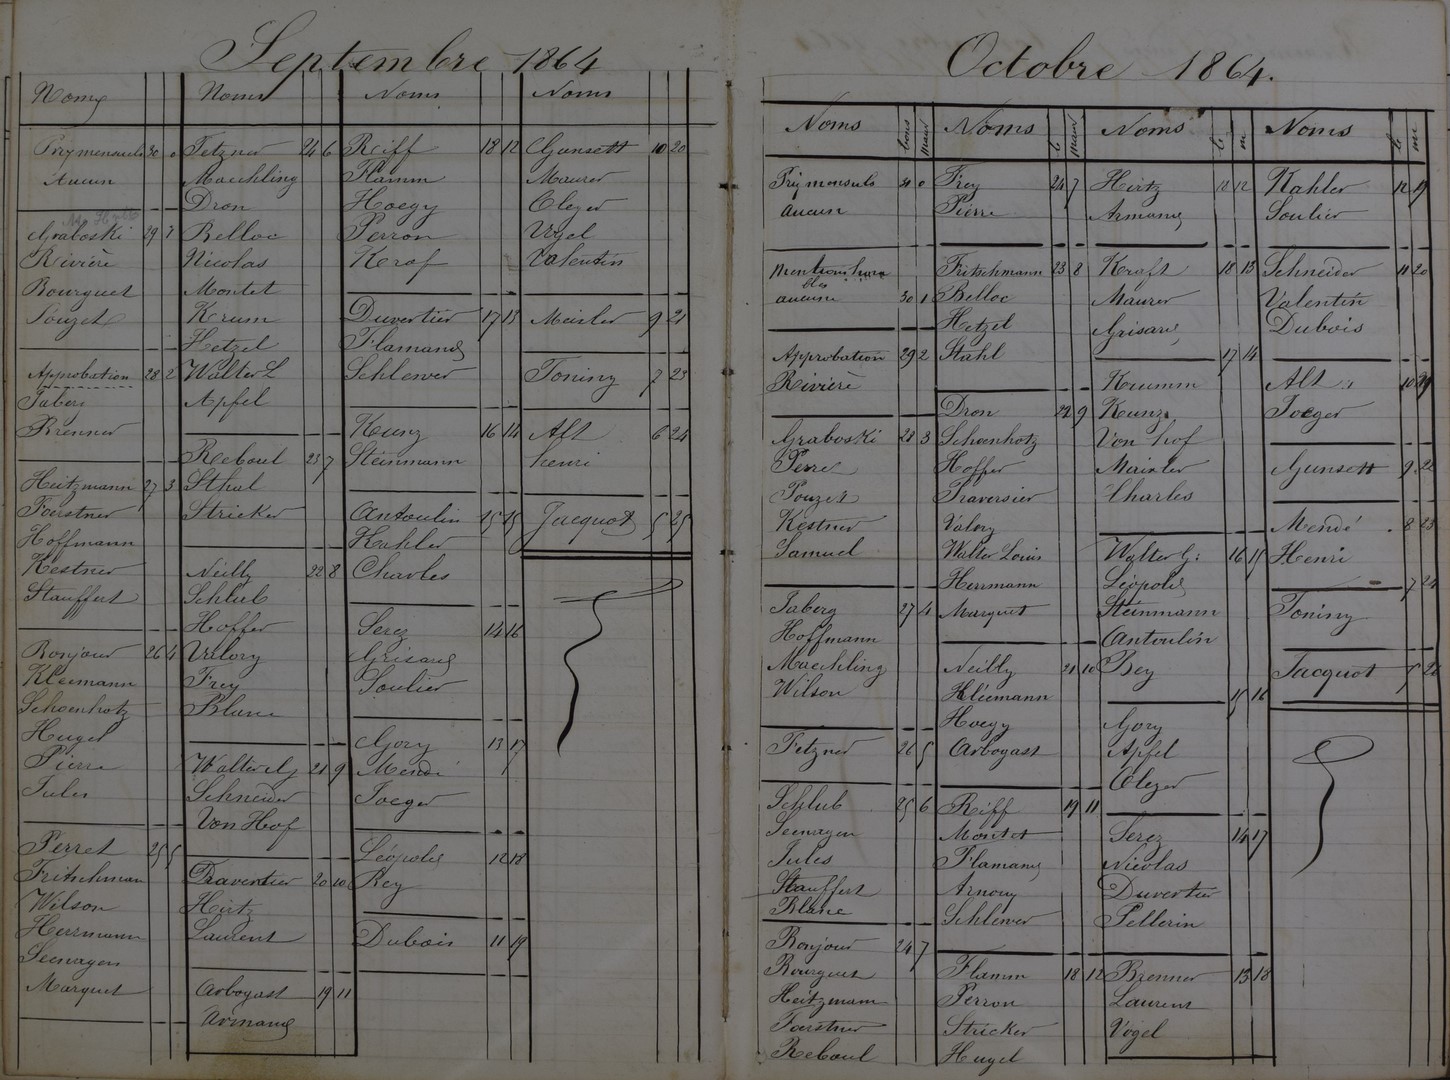 Septembre 1864
Noms
Prix mensuels 30 0
Aucun
Graboski 29 1
Rivière
Bourguet
Pouzet
Approbation 28 2
Taberg
Brenner
Heitzmann 27 3
Foerstner
Hoffmann
Kestner
Stauffert
Bonjour 26 4
Kleemann
Schoenhotz
Hugel
Pierre
Jules
Perret 25 5
Fritschman
Wilson
Herrmann
Seenagen
Marguet
Noms
Fetzner 24 6
Maechling
Dron
Belloc
Nicolas
Montet
Krum
Hetzel
Walter L
Apfel
Reboul 23 7
Sthal
Stricker
Neilly 22 8
Schlub
Hoffer
Valory
Frey
Blanc
Walter G 21 9
Schneider
Von Hof
Traversier 20 10
Hirtz
Laurent
Arbogast 19 11
Armand
Noms
Reiff 18 12
Flamm
Hoegy
Perron
Kraf
Duvertier 17 13
Flamand
Schlewer
Kunz 16 14
Steinmann
Antoulin 15 15
Kahler
Charles
Serez 14 16
Grisard
Soulier
Gory 13 17
Mendé
Joeger
Léopold 12 18
Rey
Dubois 11 19
Noms
Gunsett 10 20
Maurer
Clezer
Vogel
Valentin
Meixler 9 21
Toniny 7 23
Alt 6 24
henri
Jacquot 5 25
Octobre 1864.
Noms bons mau
Prix mensuels 31 0
aucun
Mentions hono
bles
aucune 30 1
Approbation 29 2
Rivière
Graboski 28 3
Perret
Pouzet
Kestner
Samuel
Taberg 27 4
Hoffmann
Maechling
Wilson
Fetzner 26 5
Schlub 25 6
Seenagen
Jules
Stauffert
Blanc
Bonjour 24 7
Bourguet
Heitzmann
Foerstner
Reboul
Noms b mau
Frey 24 7
Pierre
Fritschmann 23 8
Belloc
Hetzel
Stahl
Dron 22 9
Schoenhotz
Hoffer
Traversier
Valory
Walter Louis
Herrmann
Marguet
Neilly 21 10
Kléemann
Hoegy
Arbogast
Riff 19 11
Montet
Flamand
Arnouy
Schlewer
Flamm 18 12
Perron
Stricker
Hugel
Noms b m
Hirtz 12 12
Armand
Kraft 18 13
Maurer
Grisard
17 14
Krumm
Kunz
Von hof
Maixler
Charles
Walter G: 16 15
Léopold
Steinmann
Antoulin
Rey
15 16
Gory
Apfel
Clezer
Serez 14 17
Nicolas
Duvertier
Pellerin
Brenner 13 18
Laurent
Vogel
Noms b m
Kahler 12 19
Soulier
Schneider 11 20
Valentin
Dubois
Alt 10 21
Joeger
Gunsett 9 22
Mendé 8 23
Henri
7 24
Toniny
Jacquot 5 26